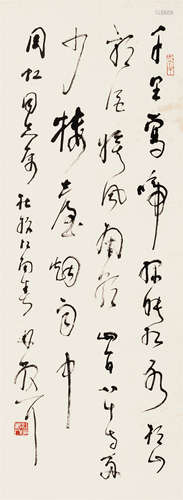 千里鶯啼綠映紅水村山
郭酒旗風南朝四百八十寺多
少樓臺烟雨中
同志屬 杜牧江南春 散耳